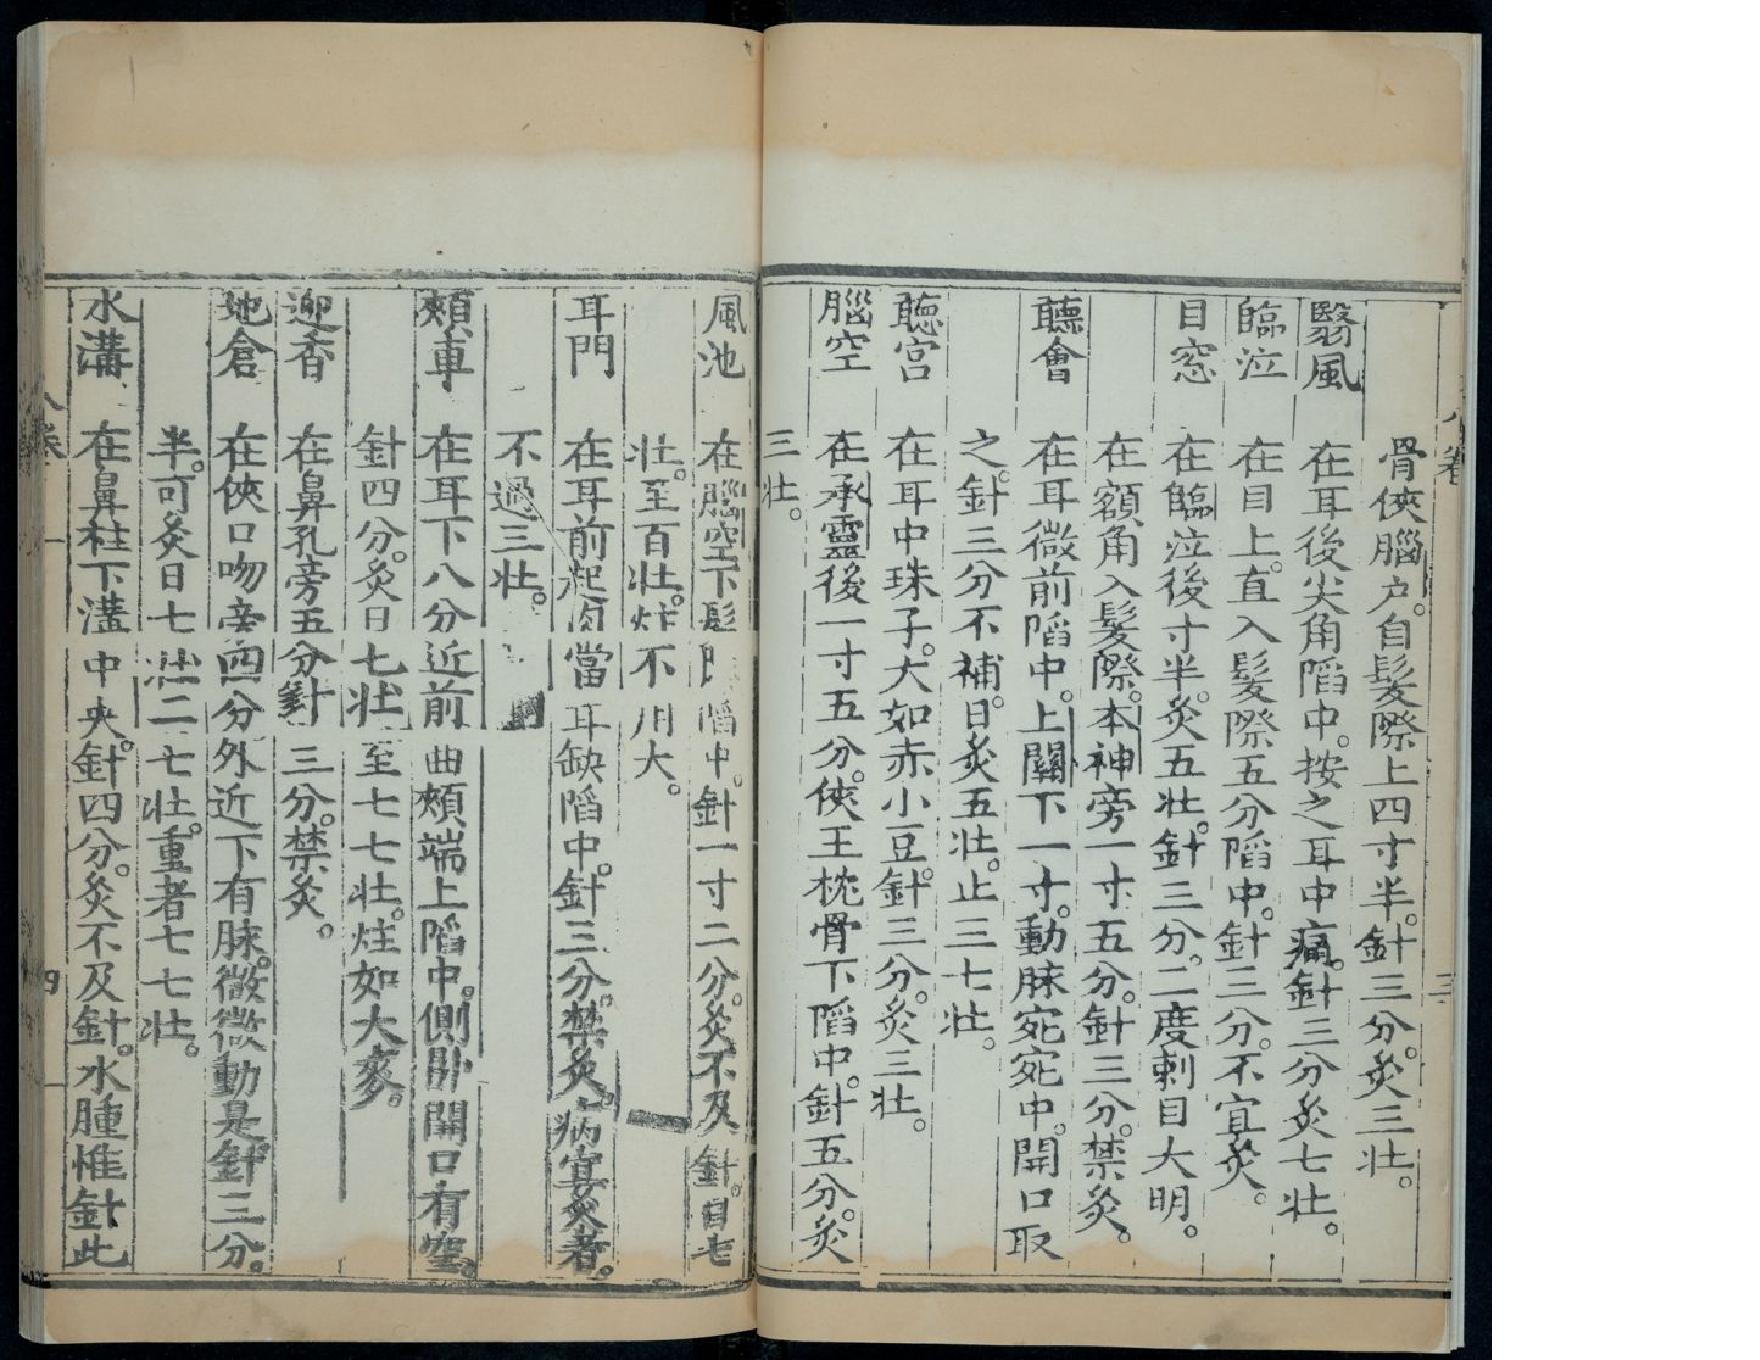 骨俠腦户。自髮際上四寸半。針三分。灸三壯。
翳風 在耳後尖角䧟中。按之耳中痛。針三分灸七壯。
臨泣 在目上。直入髮際五分䧟中。針三分。不宜灸。
目窓 在臨泣後寸半。灸五壯。針三分。二度刺目大明。
在額角入髮際。本神旁一寸五分。針三分。禁灸。
聽會 在耳微前䧟中。上關下一寸。動脉宛宛中。開口取
之。針三分不補。日灸五壯。止三七壯。
聽宫 在耳中珠子。大如赤小豆。針三分。灸三壯。
腦空 在承靈後一寸五分。俠王枕骨下䧟中。針五分。灸
三壯。
風池 在腦空下髮 䧟中。針一寸二分。灸不及針。日七
壯。至百壯。炷不用大。
耳門 在耳前起肉當耳缺䧟中。針三分。禁灸。病宜灸者。
不過三壯。
頰車 在耳下八分近前曲頰端上䧟中。側卧開口有空。
針四分。灸日七壯至七七壯。炷如大麥。
迎香 在鼻孔旁五分針三分。禁灸。
地倉 在俠口吻旁四分外近下有脉。微微動是針三分。
半。可灸日七壯二七壯。重者七七壯。
水溝 在鼻柱下溝中央。針四分。灸不及針。水腫惟針此
八卷
三
八卷
四